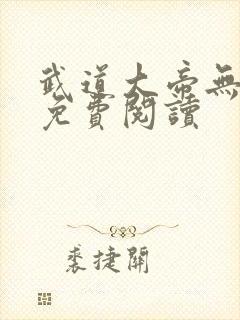 武道大帝無
免費閱讀
裘捷開